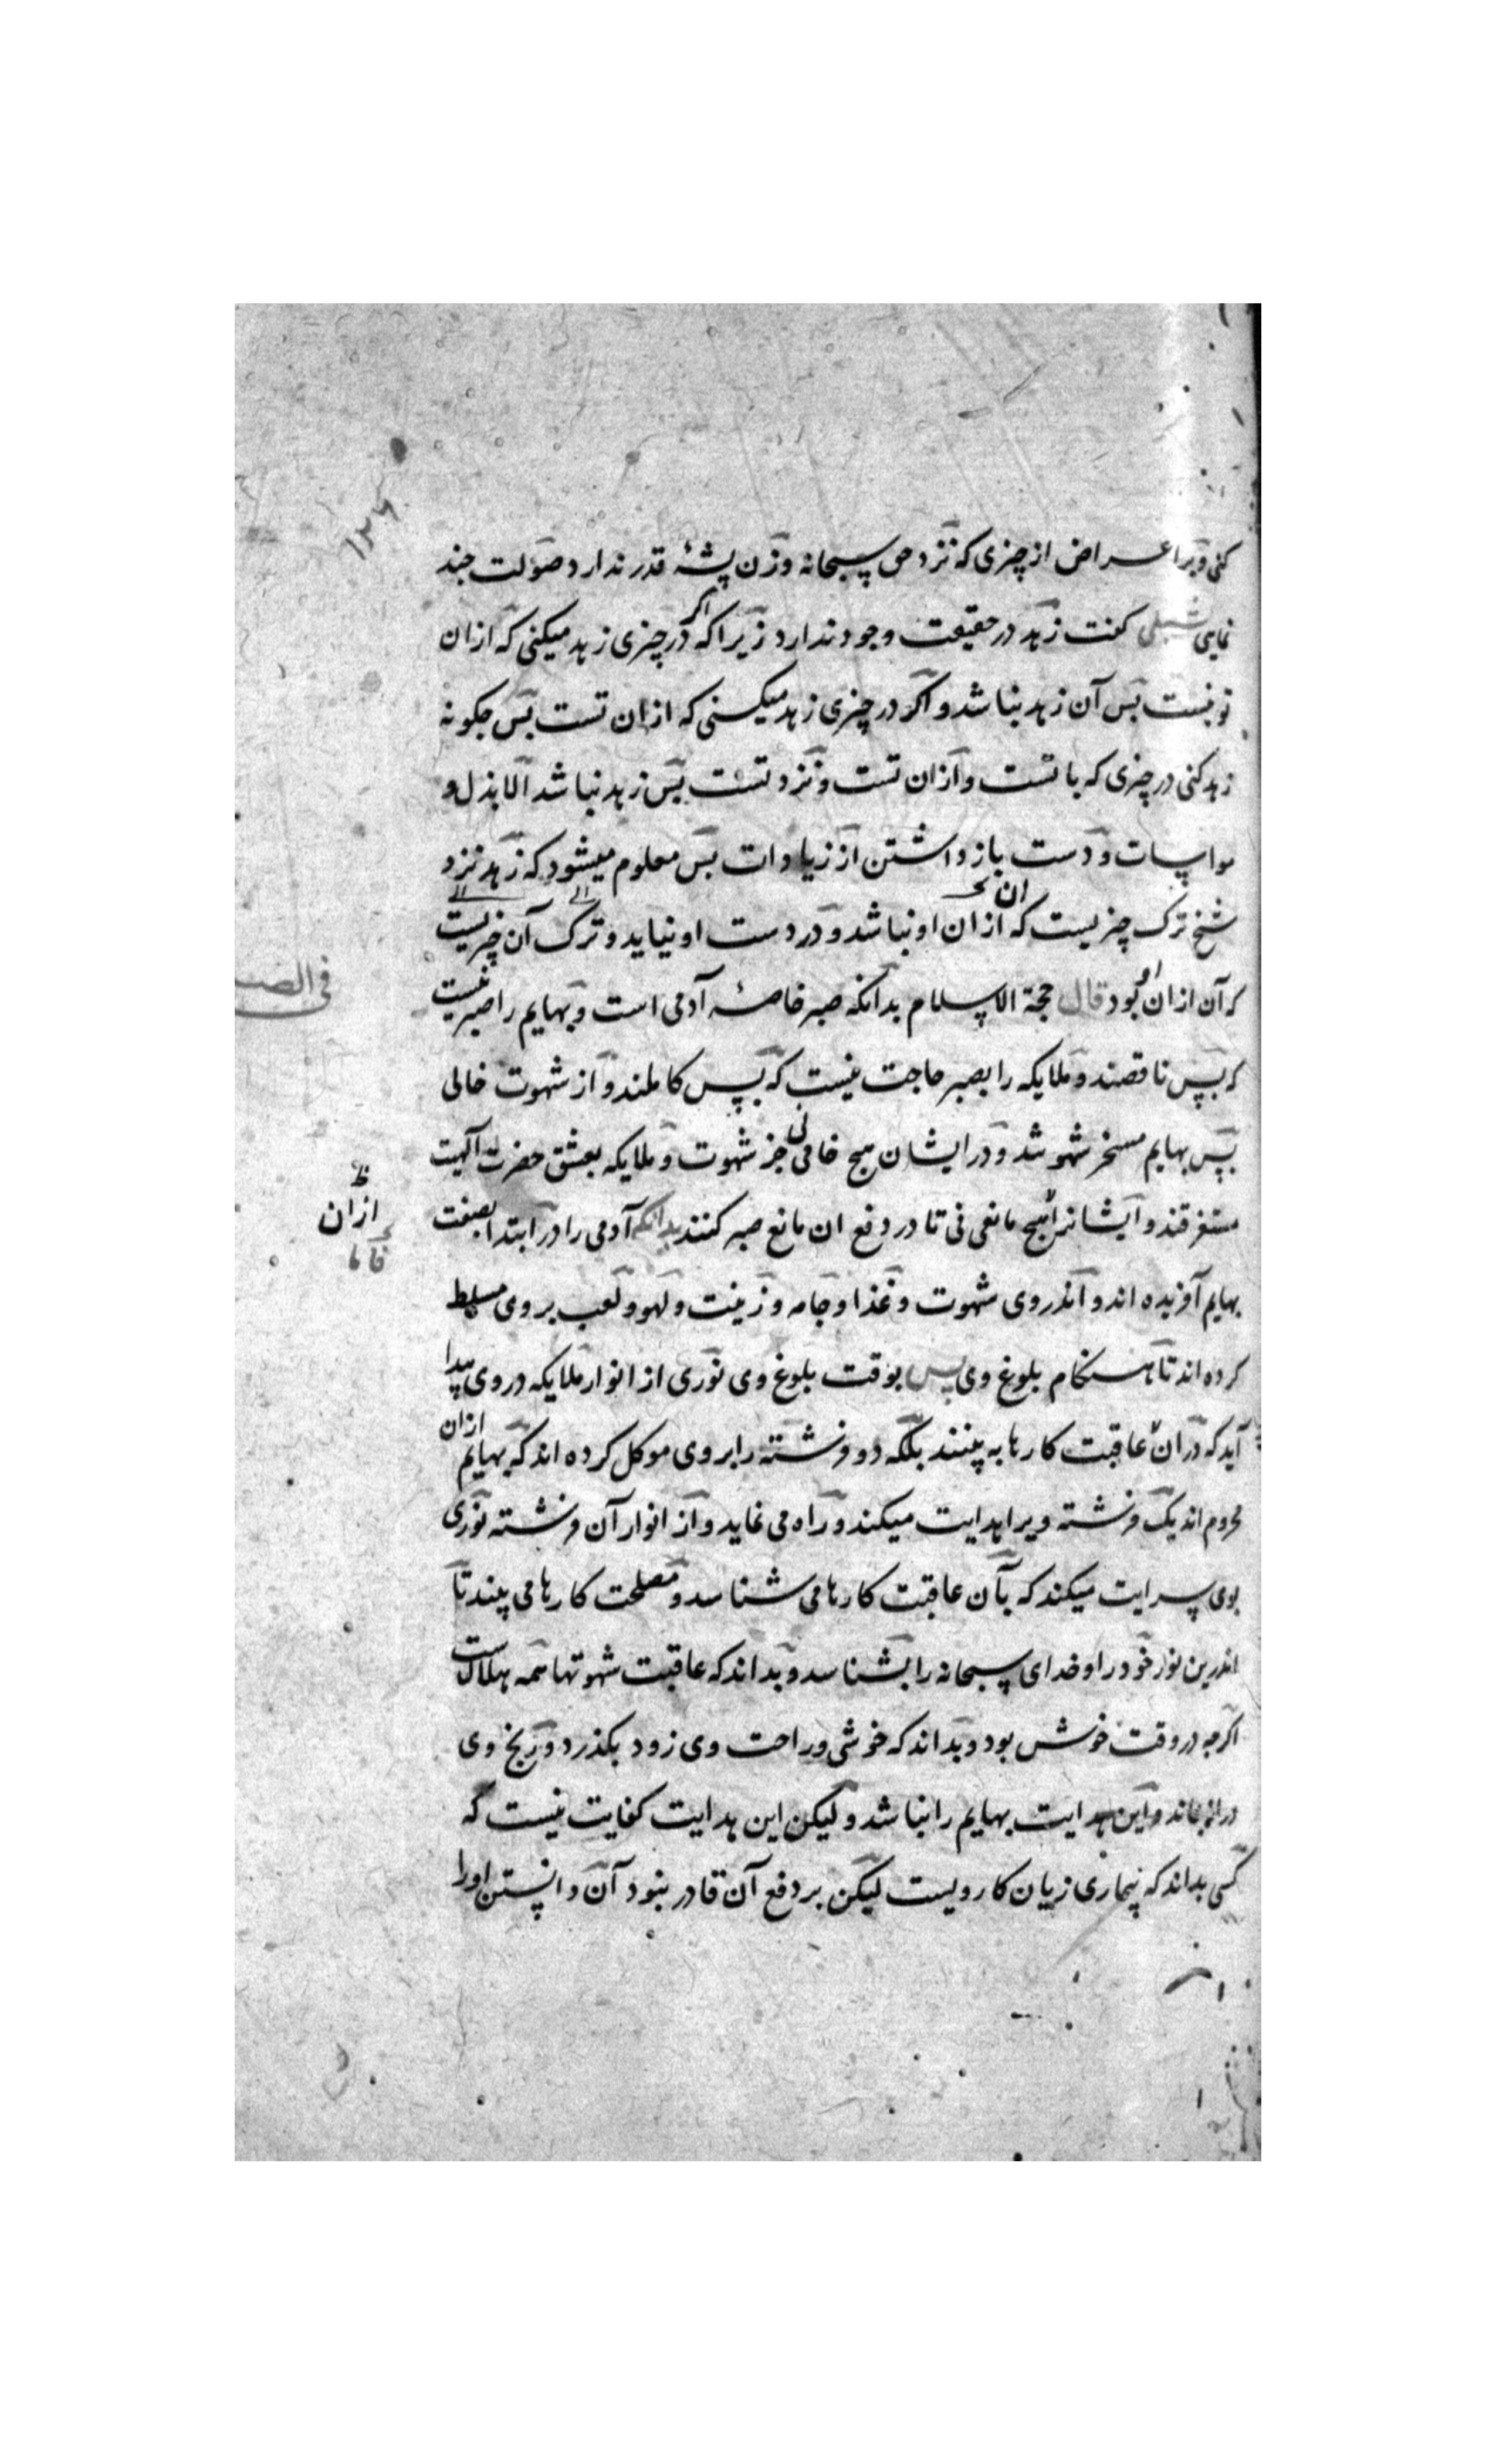 ۱۲۶
کنی و بر اعراض از چیزی که نزد حق سبحانه وزن پشهٔ قدر ندارد صولت چند
نمایی شبلی کفت زهد در حقیقت وجود ندارد زیرا که اکر در چیزی زهد میکنی که ازان
تو نیست پس آن زهد نباشد و اکر در چیزی زهد میکنی که ازان تست پس چکونه
زهد کنی در چیزی که با تست و ازان تست و نزد تست پس زهد نباشد الا بذل و
مواسات و دست باز داشتن از زیادات پس معلوم میشود که زهد نزد
شیخ ترک چیزیست که ازان او نباشد و در دست او نیاید و ترک آن چیزیست
که آن ازان او بود قال حجة الاسلام بدانکه صبر خاصهٔ آدمی است و بهایم را صبر نیست
فی الصبر
که بس ناقصند و ملایکه را بصبر حاجت نیست که بس کاملند و از شهوت خالی
پس بهایم مسخر شهوتند و در ایشان هیچ خامی نی جز شهوت و ملایکه بعشق حضرت الهیت
مستغرقند و ایشانرا هیچ مانعی نی تا در دفع ان مانع صبر کنند بدانکه آدمی را در ابتدا بصفت
ازان
بهایم آفریده اند و اندروی شهوت و غذا و جامه و زینت و لهو و لعب بر وی مسلط
کرده اند تا هنکام بلوغ وی پس بوقت بلوغ وی نوری از انوار ملایکه در وی پیدا
آید که در ان عاقبت کارها به بینند بلکه دو فرشته را بر وی موکل کرده اند که بهایم ازان
محروم اند یک فرشته ویرا هدایت میکند و راه می نماید و از انوار آن فرشته نوری
بوی سرایت میکند که بآن عاقبت کارها می شناسد و مصلحت کارها می بیند تا
اندرین نور خود را و خدای سبحانه را بشناسد و بداند که عاقبت شهوتها همه هلاکست
اکرچه در وقت خوش بود و بداند که خوشی و راحت وی زود بکذرد و رنج وی
دراز بماند و این هدایت بهایم را نباشد و لیکن این هدایت کفایت نیست که
کسی بداند که بیماری زیان کار ویست لیکن بر دفع آن قادر نبود آن دانستن او را